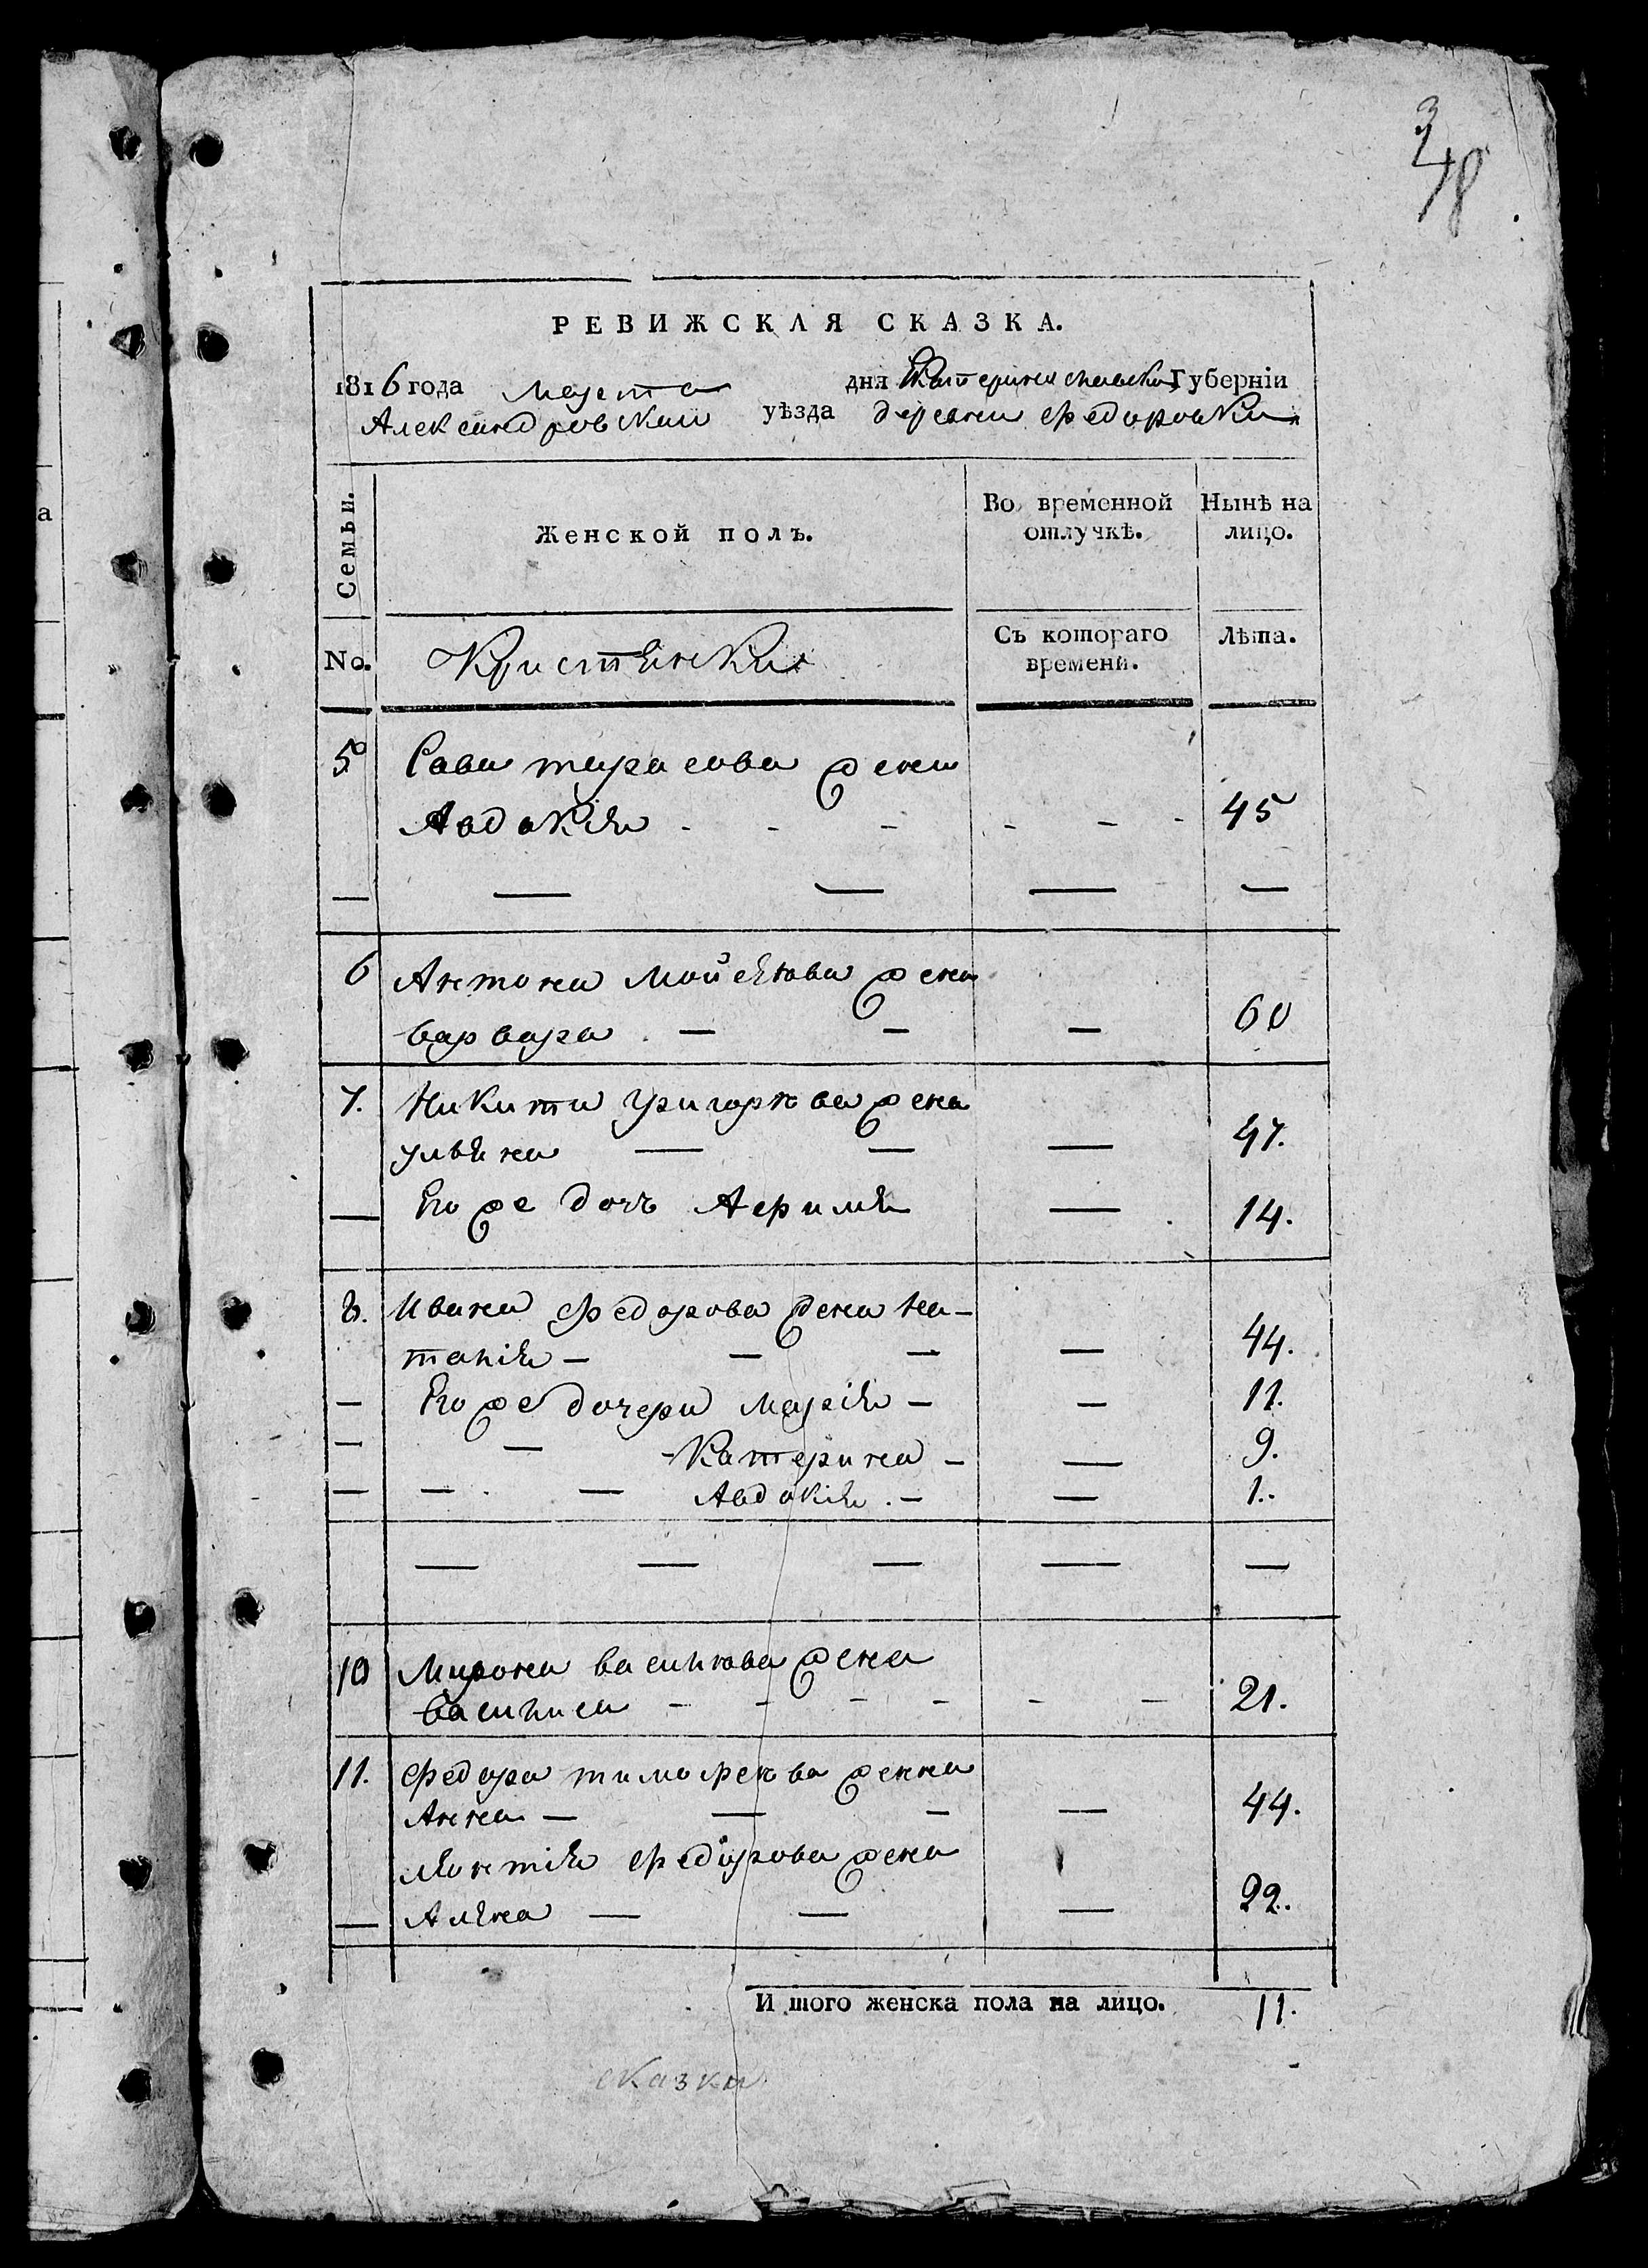 3
48
РЕВИЖСКАЯ СКАЗКА.
1816 года марта дня Екатеринославской Губерніи
Александровскаго уѣзда деревни Федоровки
Семьи.
Женской полъ.
Во временной отлучкѣ.
Нынѣ на лицо.
No.
Кристянки
Съ котораго времени.
Лѣта.
5 Сави тарасова жена
Авдокія - - - - - - 45
— — — — —
6 Антона Мойсѣева жена
варвара — — — 60
7. Никити григорьева жена
ульяна — — — 47.
— Его же дочь — 14.
8. Ивана федорова жена На-
талія — — — — 44.
— Его же дочери марія — — 11.
— — Катерина — — 9.
— — — Авдокія — — 1.
— — — — —
10 Мирона васильева жена
василиса - - - - - - 21.
11. федора тимофеева женна
Анна — — — — 44.
федорова жена
— Алена — — — 22.
И того женска пола на лицо. 11.
сказки
а